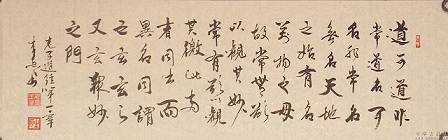 道可道非
常道名可
名非常名
無名天地
之始有名
萬物之母
故常無欲
以觀其妙
常有欲以觀
其徼此兩
者同出而
異名同謂
之玄玄之
又玄衆妙
之門
老子道經第一章